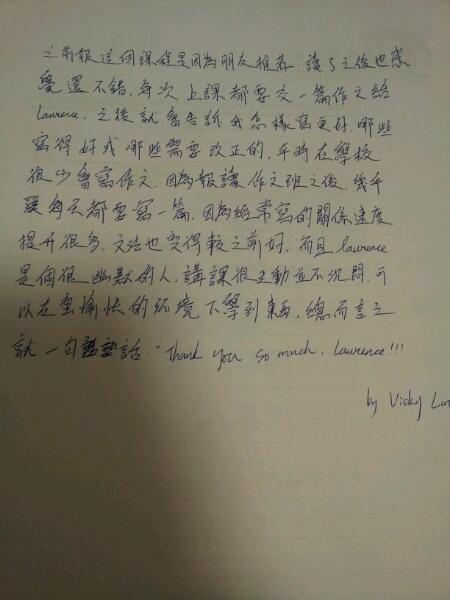 之前報這個課程是因為朋友推荐,讀了之後也感
覺還不錯,每次上課都要交一篇作文給
lawrence,之後就會告訴我怎樣寫更好,哪些
寫得好或哪些需要改正的,平時在學校
很少會寫作文,因為報讀作文班之後,幾乎
每天都要寫一篇,因為經常寫的關係速度
提升很多,文法也變得較之前好,而且lawrence
是個很幽默的人,講課很生動並不沉悶,可
以在愉快的环境下學到東西,總而言之
就一句話:"Thank you so much, Lawrence!!!
by Vicky Lin